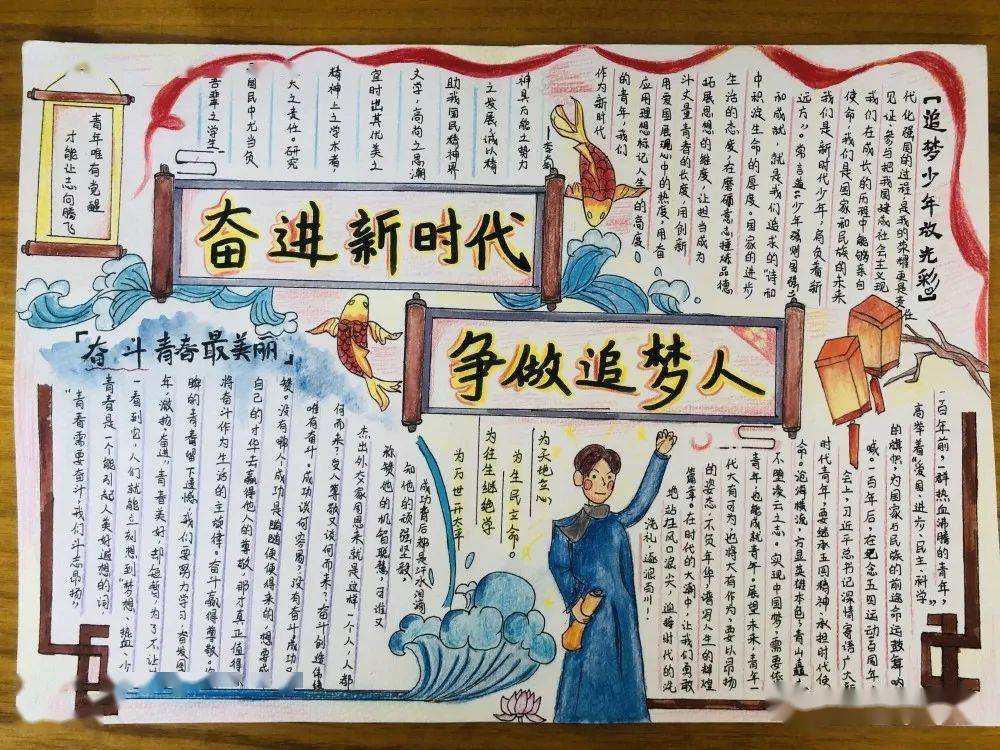 青年唯有觉醒
才能让志向腾飞
奋进新时代
争做追梦人
『追梦少年放光彩』
代化强国的过程,是我的荣耀更是责任
见证、参与把我国建成社会主义现
我们在成长的历程中能够亲向
使命,我们是国家和民族的未来
我们是新时代少年,肩负着新
远方”。常言道:少年强则国强
和成就,就是我们追求的“诗和
中积淀生命的厚度。国家的进步
生活的态度,在磨砺意志捶炼品德
拓展思想的维度,让担当成为
斗丈量青春的长度,用创新
用爱国展现心中的热度,用奋
应用理想标记人生的高度。
的青年,我们
作为新时代
神具万能之势力
之发展,诚以精
助我国民精神界
文学,高尚之思潮
宜时进其优美之
精神上之学术者,
大之责任。研究
国民中尤当负
吾辈之学生
「奋斗青春最美丽」
“青春需要奋斗,我们斗志昂扬”
青春是一个能引起人美好遐想的词
一看到它,人们就能立刻想到“梦想、热血、少
年、激扬、奋进”,青春美好,却短暂,为了不让
瞬的青春留下遗憾,我们要努力学习,奋发图
将奋斗作为生活的主旋律。奋斗赢得尊敬。
自己的才华去赢得他人的尊敬,那才真正值得
赞。没有哪人成功是随随便便得来的,想要成
唯有奋斗。成功谈何容易?没有奋斗成功
何而来?受人尊敬又谈何而来?奋斗创造
杰出外交家周恩来就是这样,个人人都
称赞他的机智聪慧,可谁又
知他的顽强坚毅,
成功背后都是汗水泪滴
为天地立心
为生民立命。
为往生继绝学
为万世开太平
一百年前,一群热血沸腾的青年,
高举着“爱国、进步、民主、科学”
的旗帜,为国家与民族的前途命运鼓舞呐
喊。一百年后,在纪念五四运动百周年
会上,习近平总书记深情寄语广大新
时代青年,要继承五四精神承担时代使
命。沧海横流,方显英雄本色,青山矗
不堕凌云之志。实现中国梦,需要依
青年,也能成就青年。展望未来,青年一
代大有可为,也将大有作为,要以昂扬
的姿态,不负年华,谱写人生的辉煌
篇章。在时代的大潮中,让我们勇敢
地站在风口浪尖,迎接时代的洗
洗礼,逐浪前川!